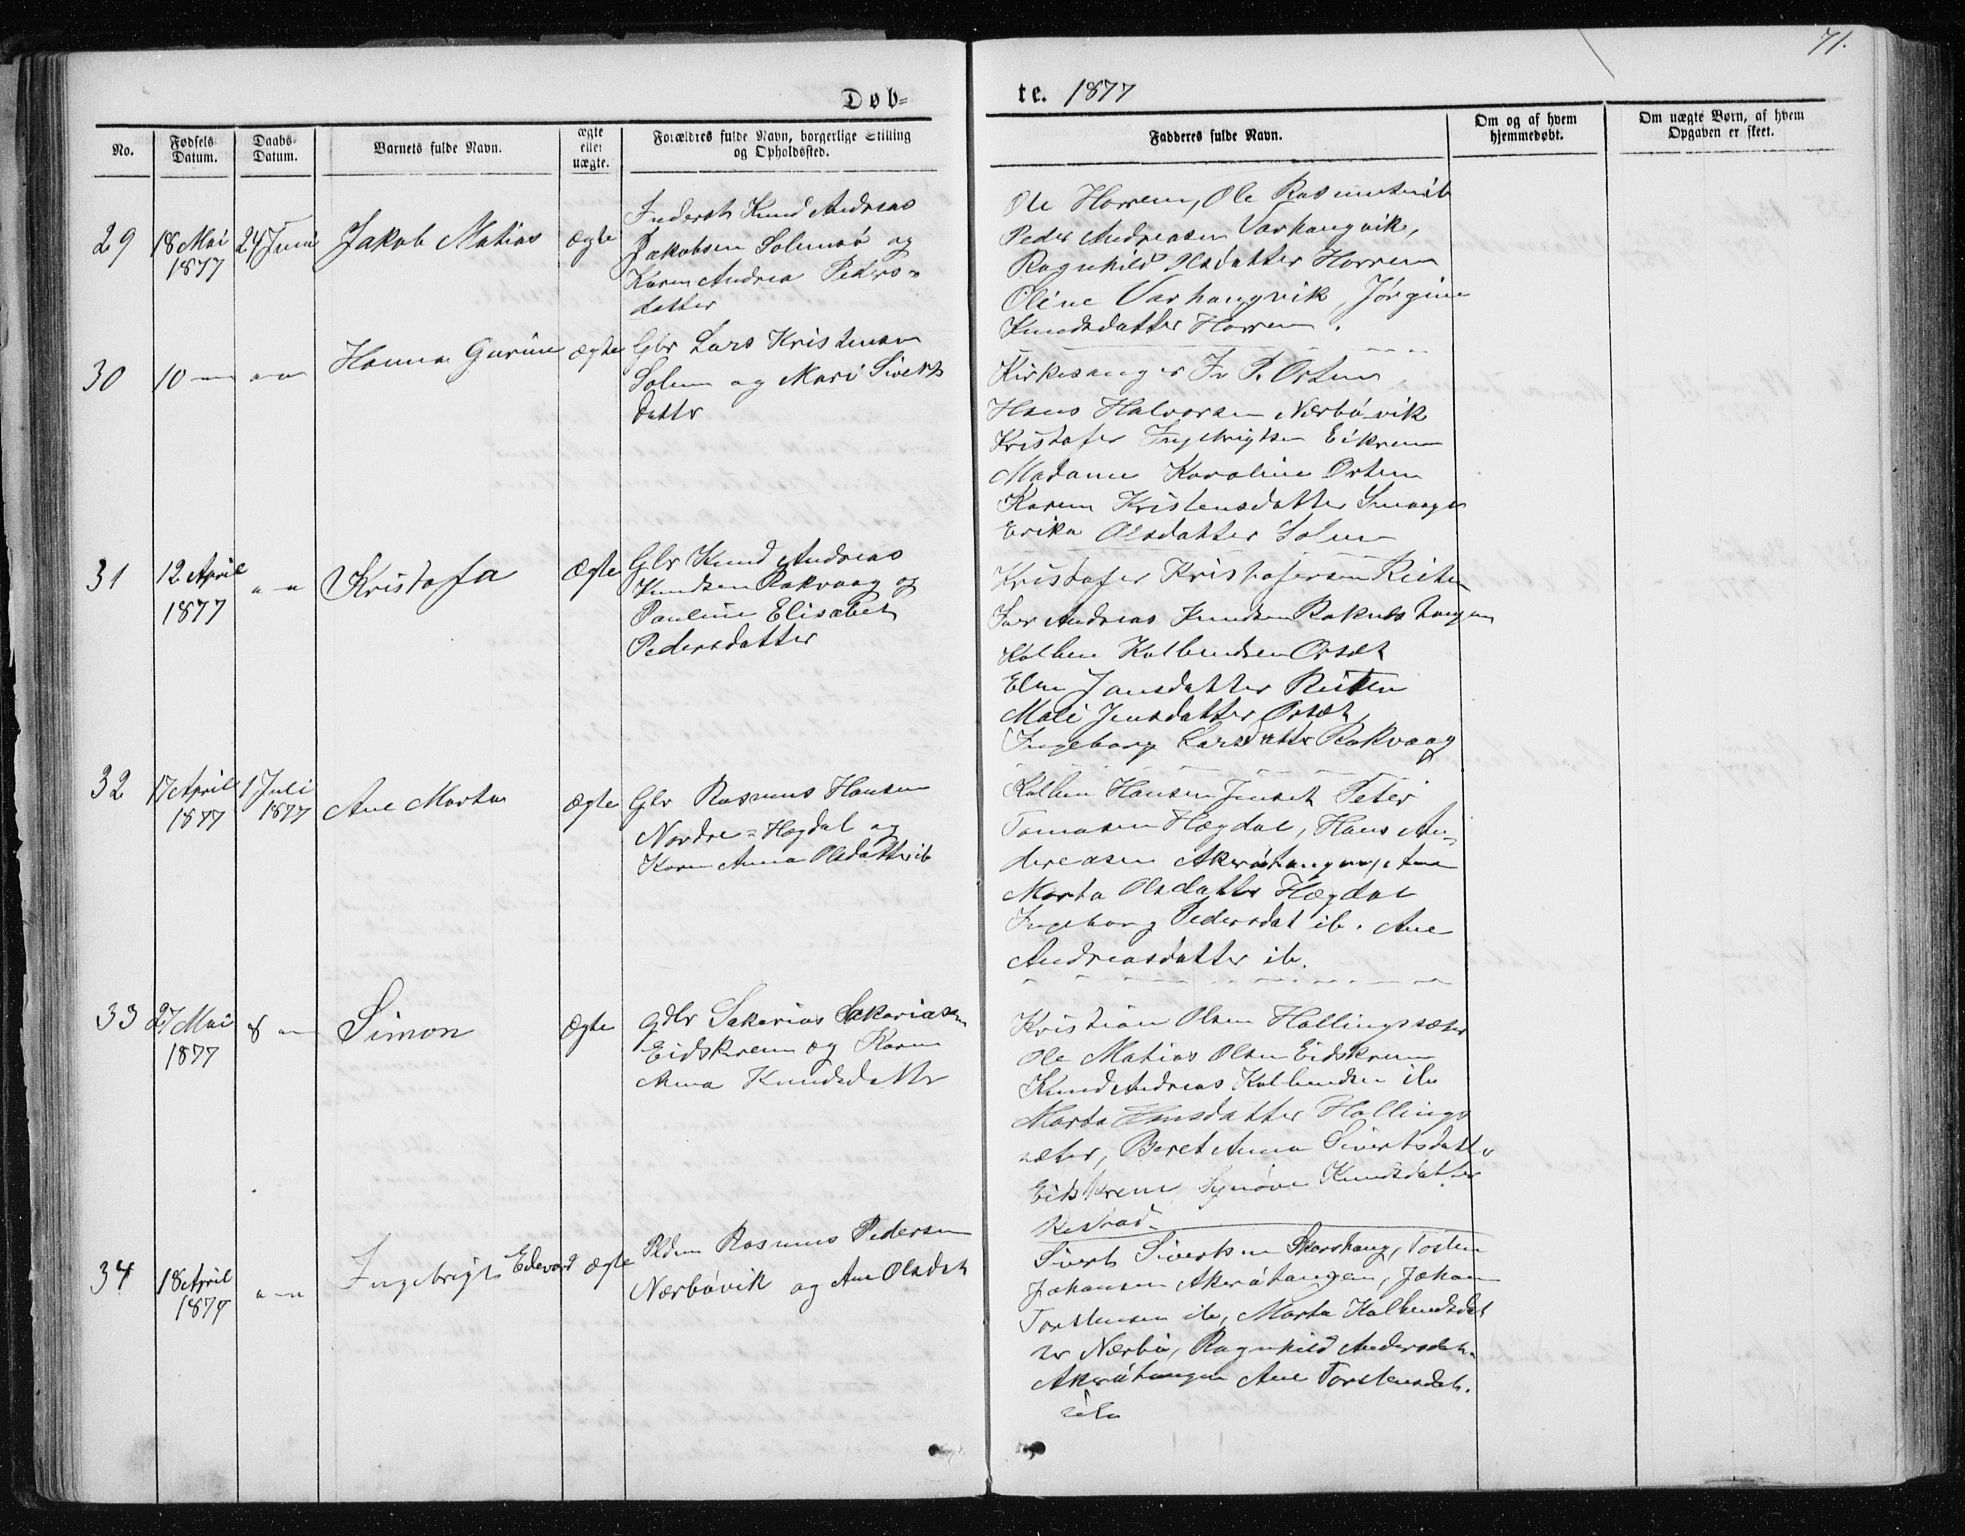 71.
Døb-
te. 1877
No.
Fødsels Datum.
Daabs-Datum.
Barnets fulde Navn.
ægte eller uægte.
Forældres fulde Navn, borgerlige Stilling og Opholdssted.
Fadderes fulde Navn.
Om og af hvem hjemmedøbt.
Om uægte Børn, af hvem Opgaven er skeet.
29
18 Mai 1877
24 Juni
Jakob Matias
ægte
Inderst Knud Andreas
Jakobsen Solemsø og
Karen Andrea Peders=
datter
Ole Horrem, Ole Rasmusen ib
Peder Andreasen Varhaugvik,
Ragnhild Olsdatter Horrem
Oline Varhaugvik, Jørgine
Knudsdatter Horrem.
30
10 — — —
Hanna Gurine
ægte
Gbr Lars Kristensen
Solem og Mari Siverts
datter
Kirkesanger Fr P. Orten
Hans Halvorsen Nærbøvik
Kristofer Ingebrigtsen Eikrem
Madame Karoline Orten
Karen Kristensdatter Smaage
Erika Olsdatter Solem
31
12 April 1877
" — "
Kristofa
Ægte
Gbr Knud Andreas
Knudsen Rakvaag og
Pauline Elisabet
Pedersdatter
Kristofer Kristofersen Rieten
Iver Andreas Knudsen
Kolben Kolbendsen Orsæt
Elen Jonsdatter Rieten
Mali Jensdatter Orsæt,
Ingeborg Larsdatter Rakvaag
32
17 April 1877
1 Juli 1877
Ane Marta
ægte
Gbr Rasmus Hansen
Nordre=Hægdal og
Karen Anna Olsdatter ib
Kolben Hansen Jenset Peter
Tomasen Hægdal, Hans An-
dreasen Akerøtangen, Ane
Marta Olsdatter Hægdal
Ingeborg Pedersdat ib. Ane
Andreasdatter ib.
33
27 Mai 1877
8 —
Simon
Ægte
Gdbr Sakarias Sakariasen
Eidskrem og Karen
Anna Knudsdatter
Kristian Olsen Hallingssæter
Ole Matias Olsen Eidskrem
Knud Andreas Kolbendsen ib
Marta Hansdatter Hallings
sæter, Beret Anna Sivertsdatter
Eidskrem Synøve Knudsdatter
Restad.
34
18 April 1877
" — "
Ingebrigt Edevard
ægte
Pldm Rasmus Pedersen
Nærbøvik og Ane Olsdat
Sivert Sivertsen Skarshaug, Tosten
Johansen Akerøtangen, Johan
Torstensen ib, Marta Kolbendsdat
ter Nærbø, Ragnhild Andersdat.
Akerøtangen Ane Torstensdat.